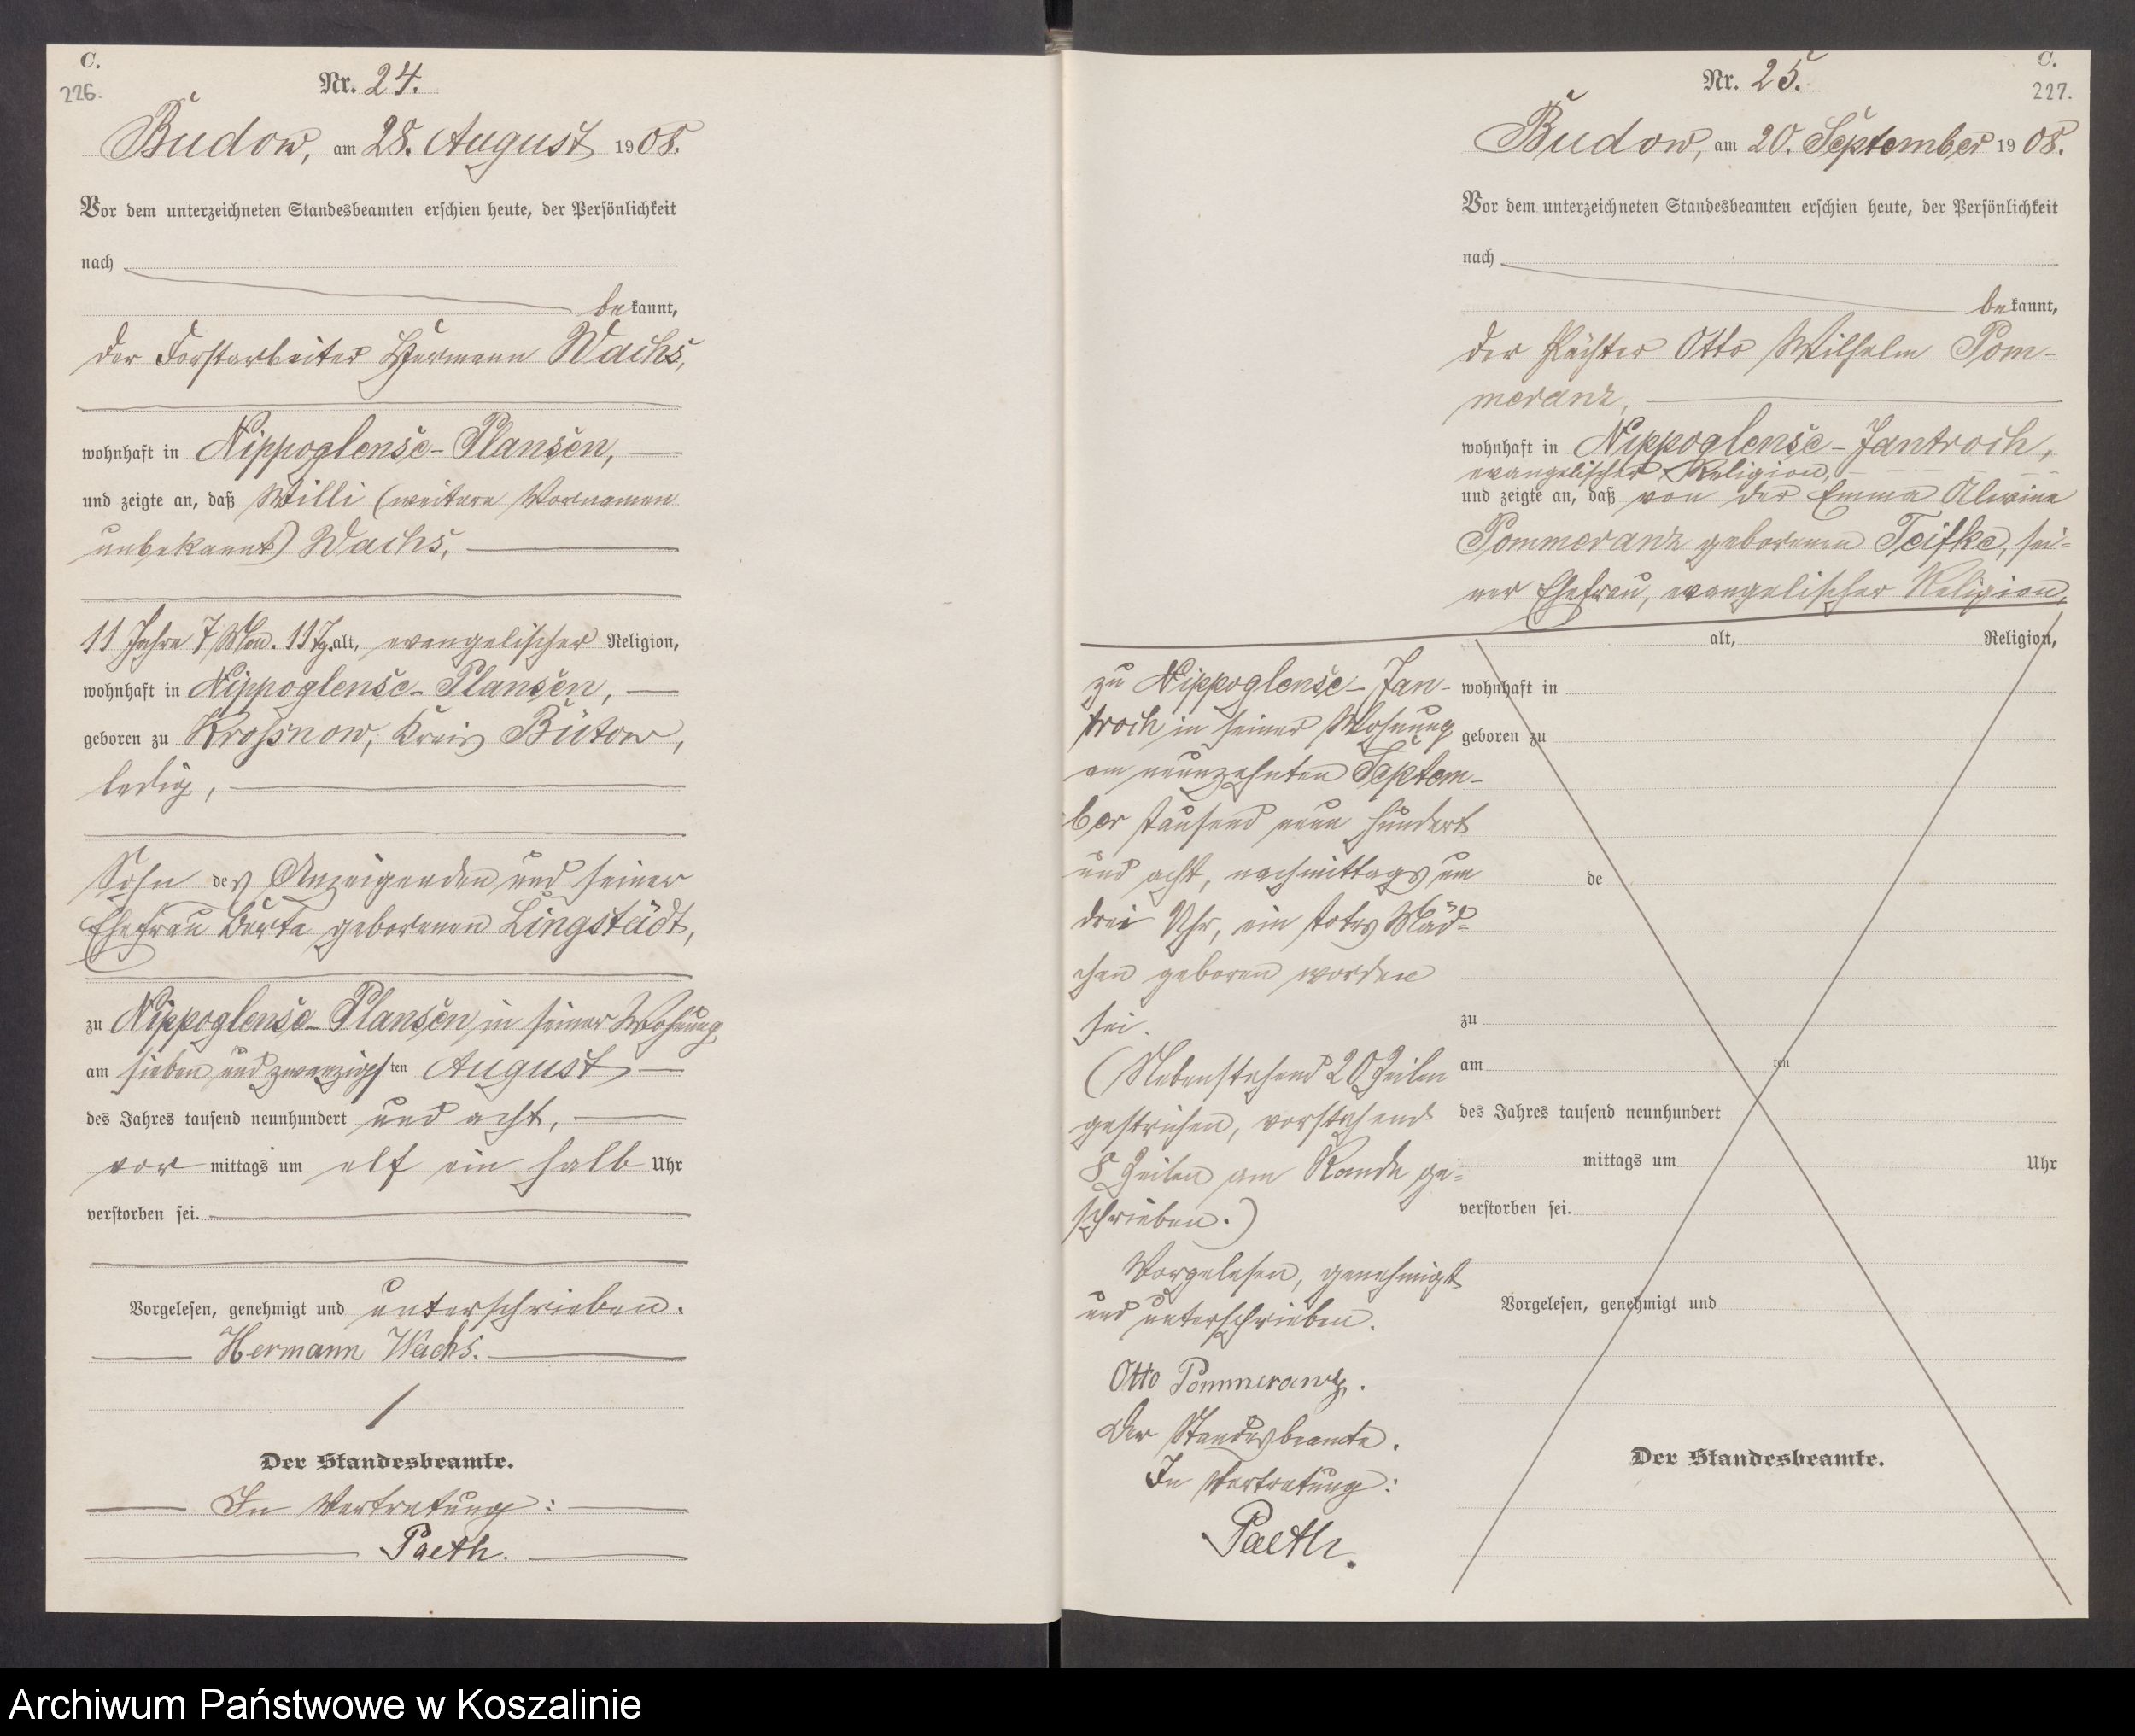 C.
226.
Nr. 24.
Budow, am 28. August 1908.
Vor dem unterzeichneten Standesbeamten erschien heute, der Persönlichkeit
nach
bekannt,
der Forstarbeiter Hermann Wachs,
wohnhaft in Nippoglense-Plansen,
und zeigte an, daß Willi (weitere Vornamen
unbekannt) Wachs,
11 Jahre 7 Mon. 11 Tg. alt, evangelischer Religion,
wohnhaft in Nippoglense-Plansen,
geboren zu Krossnow, Kreis Bütow,
ledig,
Sohn des Anzeigenden und seiner
Ehefrau Berta geborenen Lingstädt,
zu Nippoglense-Plansen, in seiner Wohnung
am sieben und zwanzigsten August
des Jahres tausend neunhundert und acht,
vor mittags um elf ein halb Uhr
verstorben sei.
Vorgelesen, genehmigt und unterschrieben.
Hermann Wachs.
Der Standesbeamte.
In Vertretung:
Paeth.
C.
227.
Nr. 25.
Budow, am 20. September 1908.
Vor dem unterzeichneten Standesbeamten erschien heute, der Persönlichkeit
nach
bekannt,
der Pächter Otto Wilhelm Pom-
meranz,
wohnhaft in Nippoglense-Jantroch,
evangelischer Religion,
und zeigte an, daß von der Emma Alwine
Pommeranz geborenen Teifke, sei-
ner Ehefrau, evangelischer Religion,
zu Nippoglense-Jan-
troch in seiner Wohnung
am neunzehnten Septem-
ber tausend neun hundert
und acht, nachmittags um
drei Uhr, ein totes Mäd-
chen geboren worden
sei.
(Nebenstehend 20 Zeilen
gestrichen, vorstehend
8 Zeilen am Rande ge-
schrieben.)
Vorgelesen, genehmigt
und unterschrieben.
Otto Pommeranz.
Der Standesbeamte.
In Vertretung:
Paeth.
alt, Religion,
wohnhaft in
geboren zu
de
zu
am ten
des Jahres tausend neunhundert
mittags um Uhr
verstorben sei.
Vorgelesen, genehmigt und
Der Standesbeamte.
Archiwum Państwowe w Koszalinie